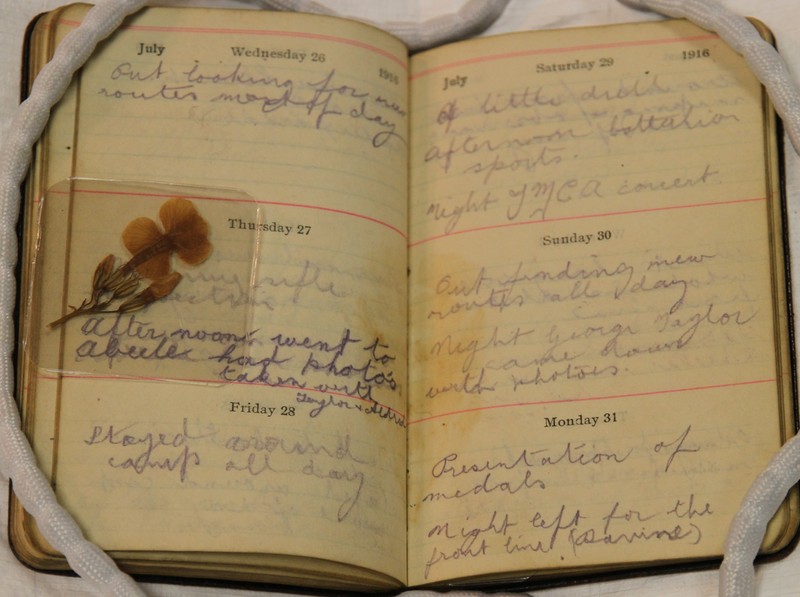 July Wednesday 26 1916
Out looking for new
routes most of day
Thursday 27
rifle
After noon went to
Abeele had photo's
taken with
Taylor &
Friday 28
Stayed around
camp all day
July Saturday 29 1916
A little drill
afternoon battalion
sports.
Night YMCA concert.
Sunday 30
Out finding new
routes all day
Night George Taylor
came down
with photoes.
Monday 31
Presentation of
medals
Night left for the
front line